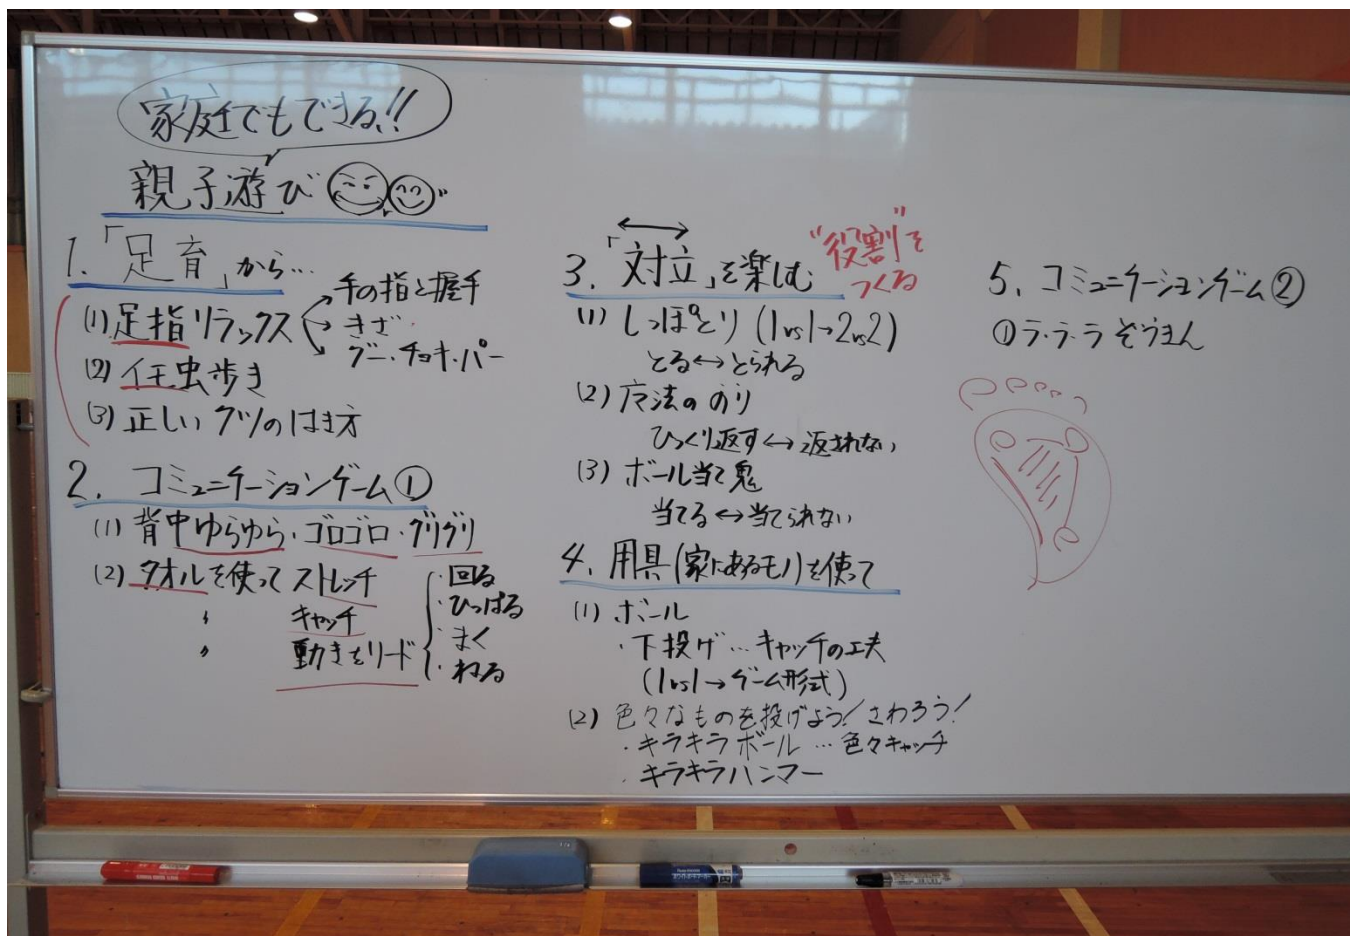 家庭でもできる!!
親子遊び
1.「足育」から…
(1) 足指リラックス
手の指と握手
きざ
グー・チョキ・パー
(2) イモ虫歩き
(3) 正しいクツのはき方
2. コミュニケーションゲーム①
(1) 背中ゆらゆら・ゴロゴロ・グリグリ
(2) タオルを使って ストレッチ
〃 キャッチ
〃 動きをリード
・回る
・ひっぱる
・まく
・ねる
3.「対立」を楽しむ
"役割"を
つくる
(1) しっぽとり (1vs1→2vs2)
とる↔とられる
(2) 魔法のおり
ひっくり返す↔返されない
(3) ボール当て鬼
当てる↔当てられない
4. 用具(家にあるモノ)を使って
(1) ボール
・下投げ…キャッチの工夫
(1vs1→ゲーム形式)
(2) 色々なものを投げよう!さわろう!
・キラキラボール…色々キャッチ
・キラキラハンマー
5. コミュニケーションゲーム②
① ラ・ラ・ラ ぞうきん